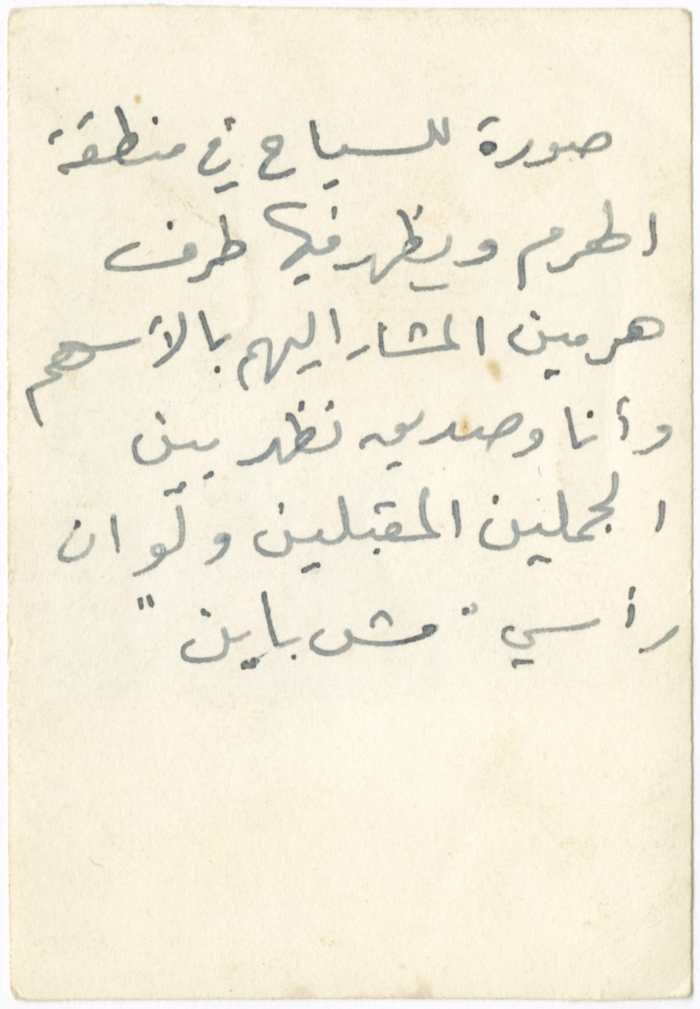 صورة للسياح في منطقة
الهرم ويظهر فيها طرف
هرمين المشار اليهم بالأسهم
وأنا وصديق نظهر بين
الجملين المقبلين ولو ان
رأسي "مش باين"